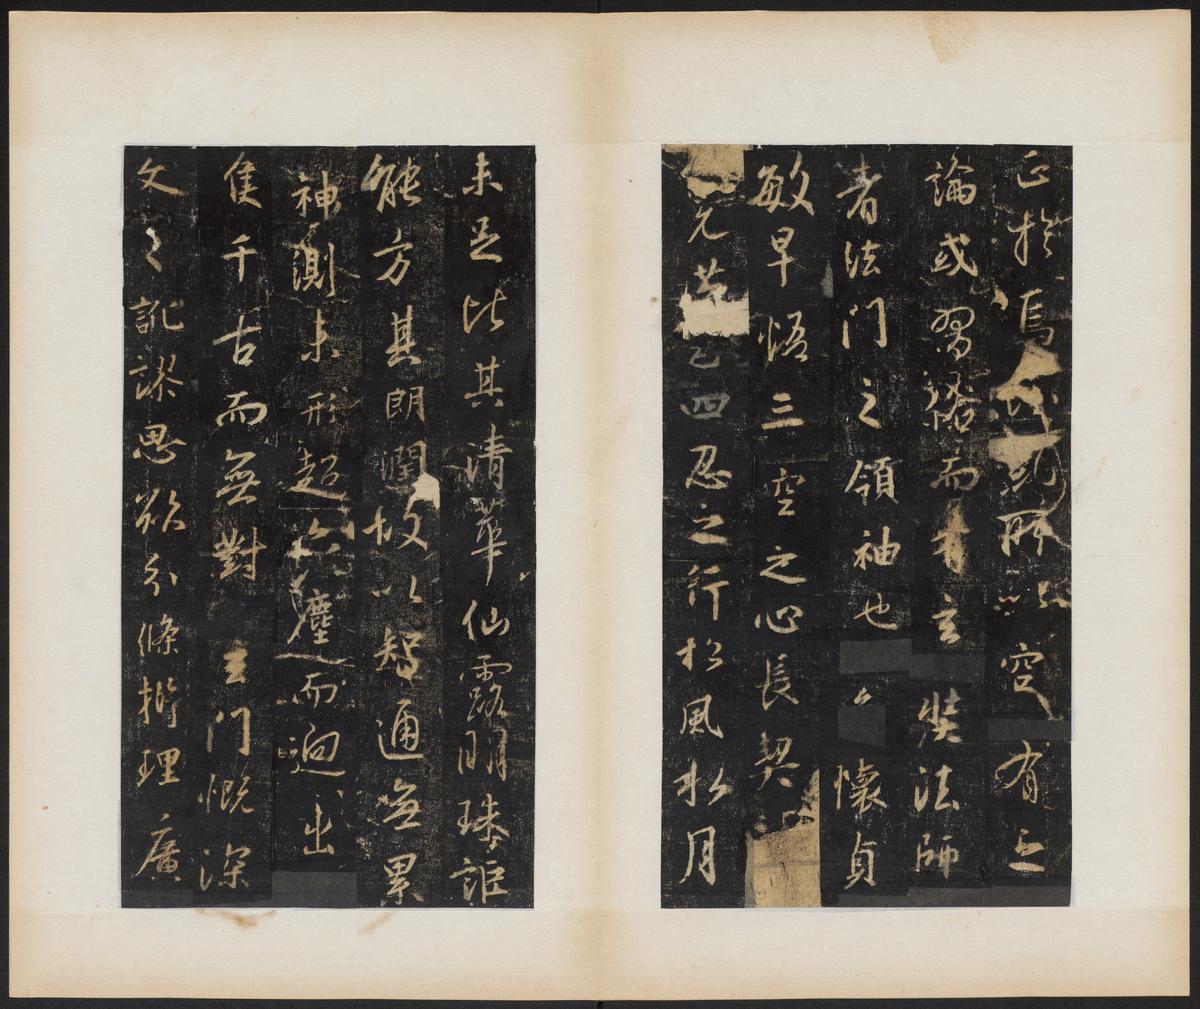 正於焉所以空有之
論或習俗而有玄奘法師
者法門之領袖也懷貞
敏早悟三空之心長契
先苞四忍之行松風水月
未足比其清華仙露明珠詎
能方其朗潤故以智通無累
神測未形超六塵而迥出
隻千古而無對玄門慨深
文之訛謬思欲分條析理廣